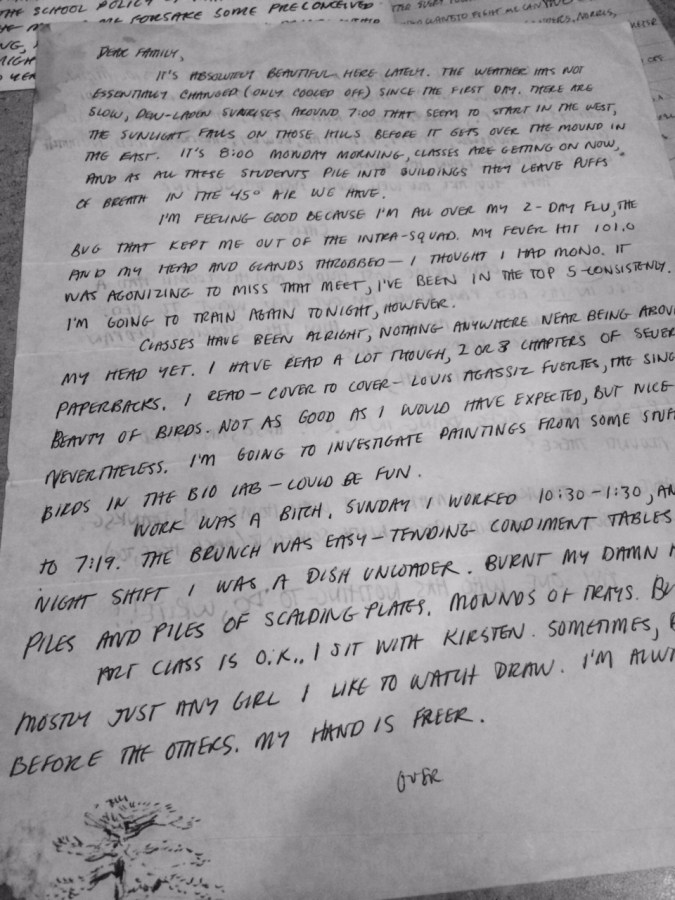 THE SCHOOL POLICY
ME FORSAKE SOME PRECONCEIVED
DEAR FAMILY,
IT'S ABSOLUTELY BEAUTIFUL HERE LATELY. THE WEATHER HAS NOT
ESSENTIALLY CHANGED (ONLY COOLED OFF) SINCE THE FIRST DAY. THERE ARE
SLOW, DEW-LADEN SUNRISES AROUND 7:00 THAT SEEM TO START IN THE WEST,
THE SUNLIGHT FALLS ON THOSE HILLS BEFORE IT GETS OVER THE MOUND IN
THE EAST. IT'S 8:00 MONDAY MORNING, CLASSES ARE GETTING ON NOW,
AND AS ALL THESE STUDENTS PILE INTO BUILDINGS THEY LEAVE PUFFS
OF BREATH IN THE 45° AIR WE HAVE.
I'M FEELING GOOD BECAUSE I'M ALL OVER MY 2-DAY FLU, THE
BUG THAT KEPT ME OUT OF THE INTRA-SQUAD. MY FEVER HIT 101.0
AND MY HEAD AND GLANDS THROBBED - I THOUGHT I HAD MONO. IT
WAS AGONIZING TO MISS THAT MEET, I'VE BEEN IN THE TOP 5 - CONSISTENTLY.
I'M GOING TO TRAIN AGAIN TONIGHT, HOWEVER.
CLASSES HAVE BEEN ALRIGHT, NOTHING ANYWHERE NEAR BEING ABOV
MY HEAD YET. I HAVE READ A LOT THOUGH, 2 OR 3 CHAPTERS OF SEVER
PAPERBACKS. I READ - COVER TO COVER - LOUIS AGASSIZ FUERTES, THE SING
BEAUTY OF BIRDS. NOT AS GOOD AS I WOULD HAVE EXPECTED, BUT NICE
NEVERTHELESS. I'M GOING TO INVESTIGATE PAINTINGS FROM SOME STUFF
BIRDS IN THE BIO LAB - COULD BE FUN.
WORK WAS A BITCH. SUNDAY I WORKED 10:30 - 1:30, AN
TO 7:19. THE BRUNCH WAS EASY - TENDING CONDIMENT TABLES
NIGHT SHIFT I WAS A DISH UNLOADER. BURNT MY DAMN H
PILES AND PILES OF SCALDING PLATES. MOUNDS OF TRAYS. BU
ART CLASS IS O.K.. I SIT WITH KIRSTEN. SOMETIMES, B
MOSTLY JUST ANY GIRL I LIKE TO WATCH DRAW. I'M ALWA
BEFORE THE OTHERS. MY HAND IS FREER.
OVER